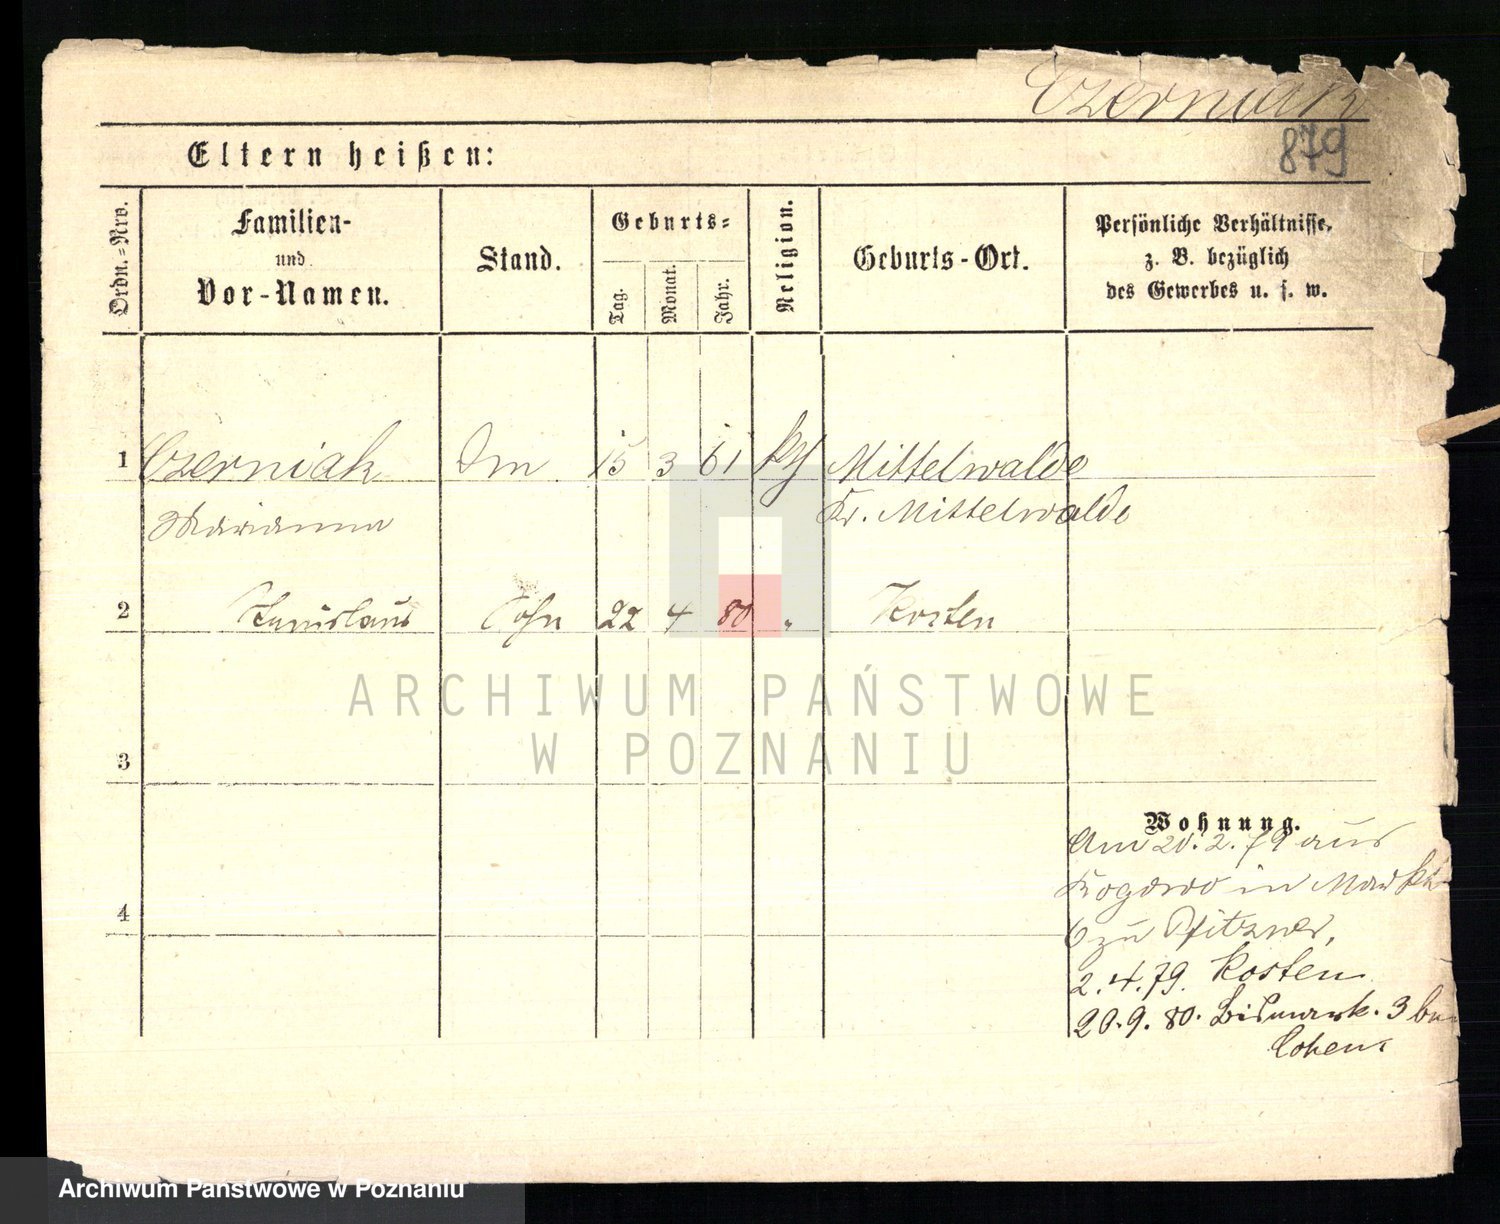 Czerniak
879
Eltern heißen:
Ordn.-Nro.
Familien-
und
Vor-Namen.
Stand.
Geburts-
Tag.
Monat.
Jahr.
Religion.
Geburts-Ort.
Persönliche Verhältnisse,
z. B. bezüglich
des Gewerbes u. s. w.
1 Czerniak 15 3 61 Mittelwalde
Marianna Kr. Mittelwalde
2 Stanislaus Sohn 22 4 80 " Kosten
3
4
Wohnung.
Am 20.2.79 aus
in Markt
6 zu Pfitzner,
2.4.79. Kosten
20.9.80. Bismark. 3 bei
Cohen
ARCHIWUM PAŃSTWOWE
W POZNANIU
Archiwum Państwowe w Poznaniu